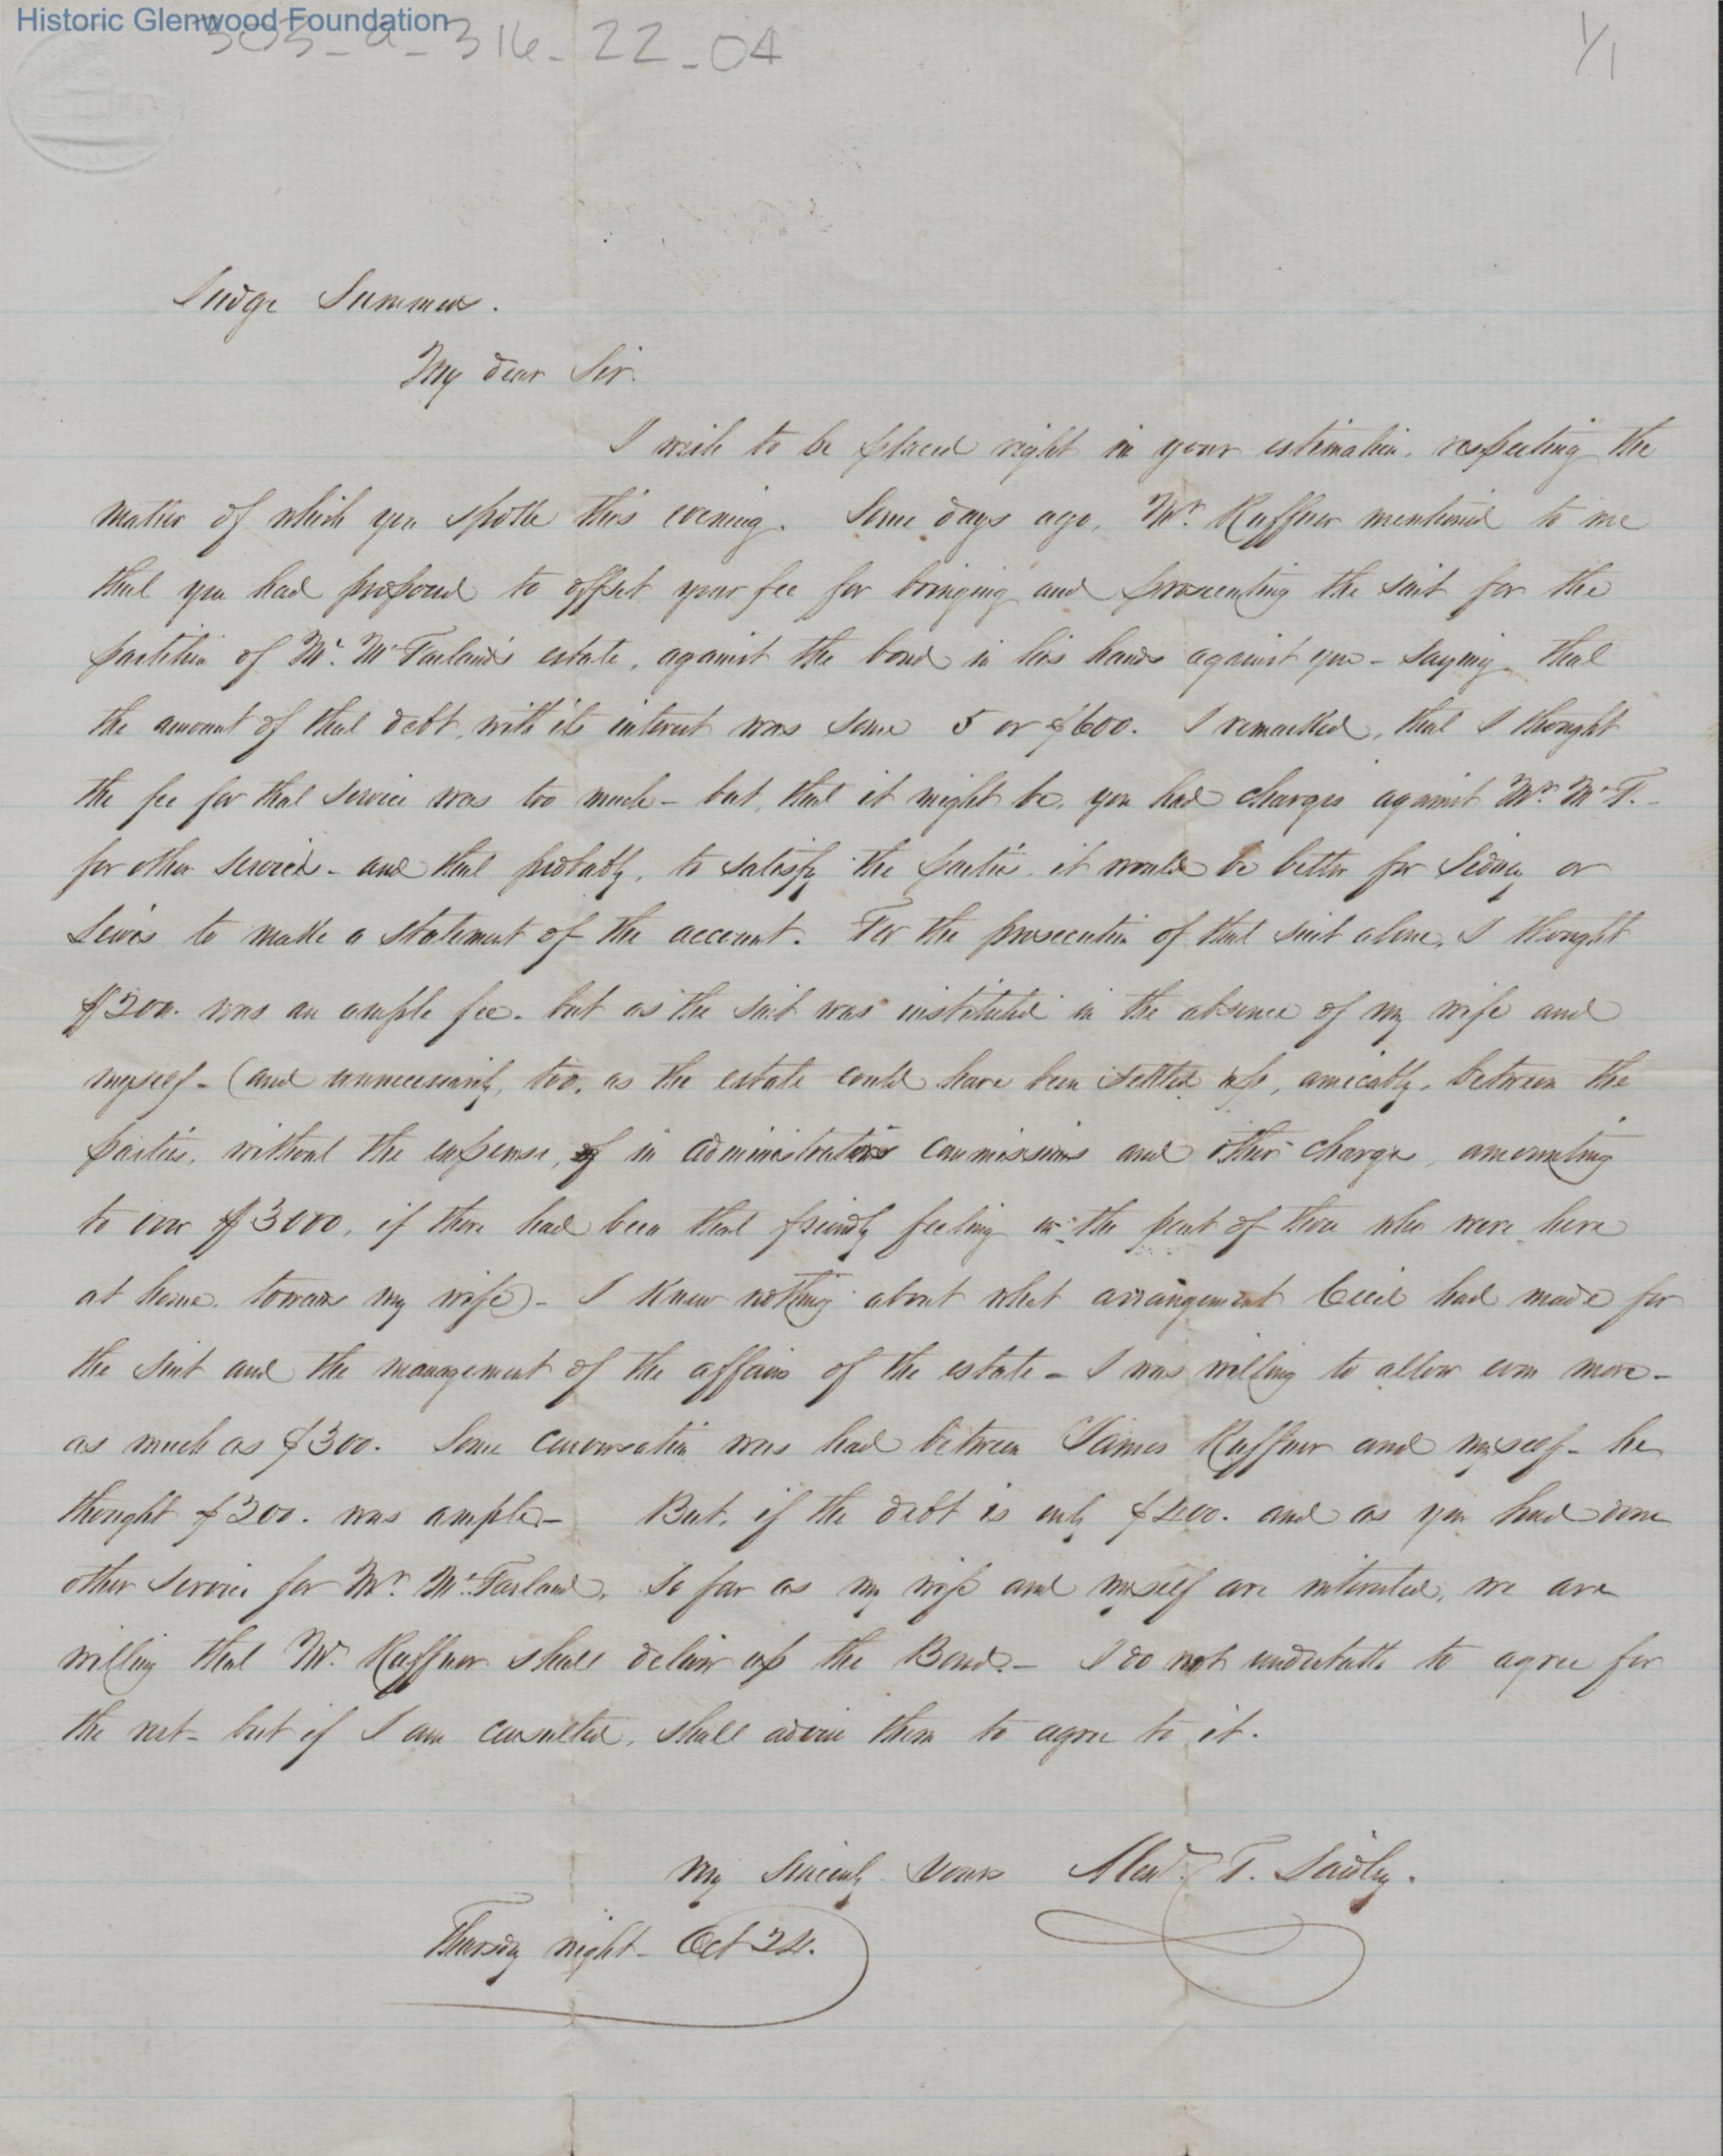 Historic Glenwood Foundation
303-a-316-22-04
1/1
Judge Summers.
My dear Sir.
I wish to be placed right in your estimation, respecting the
matter of which you spoke this evening. Some days ago, Mr. Ruffner mentioned to me
that you had proposed to offset your fee for bringing and prosecuting the suit for the
partition of Mr. McFarland's estate, against the bond in his hands against you - saying that
the amount of that debt, with its interest was some 5 or $600. I remarked, that I thought
the fee for that service was too much - but, that it might be, you had charges against Mr. McF. -
for other services - and that probably, to satisfy the parties, it would be better for Sidney or
Lewis to make a statement of the account. For the prosecution of that suit alone, I thought
$200. was an ample fee. but as the suit was instituted in the absence of my wife and
myself - (and unnecessarily, too, as the estate could have been settled up, amicably, between the
parties, without the expense, of in administrator's commissions and other charges, amounting
to over $3000, if there had been that friendly feeling on the part of those who were here
at home, towards my wife) - I knew nothing about what arrangement Cecil had made for
the suit and the management of the affairs of the estate - I was willing to allow even more -
as much as $300. Some conversation was had between James Ruffner and myself - he
thought $200. was ample - But, if the debt is only $400. and as you had done
other service for Mr. McFarland, so far as my wife and myself are interested, we are
willing that Mr. Ruffner shall deliver up the Bond. - I do not undertake to agree for
the rest - but if I am consulted, shall advise them to agree to it.
Very Sincerely Yours Alexr. T. Laidley.
Thursday night - Oct 24.